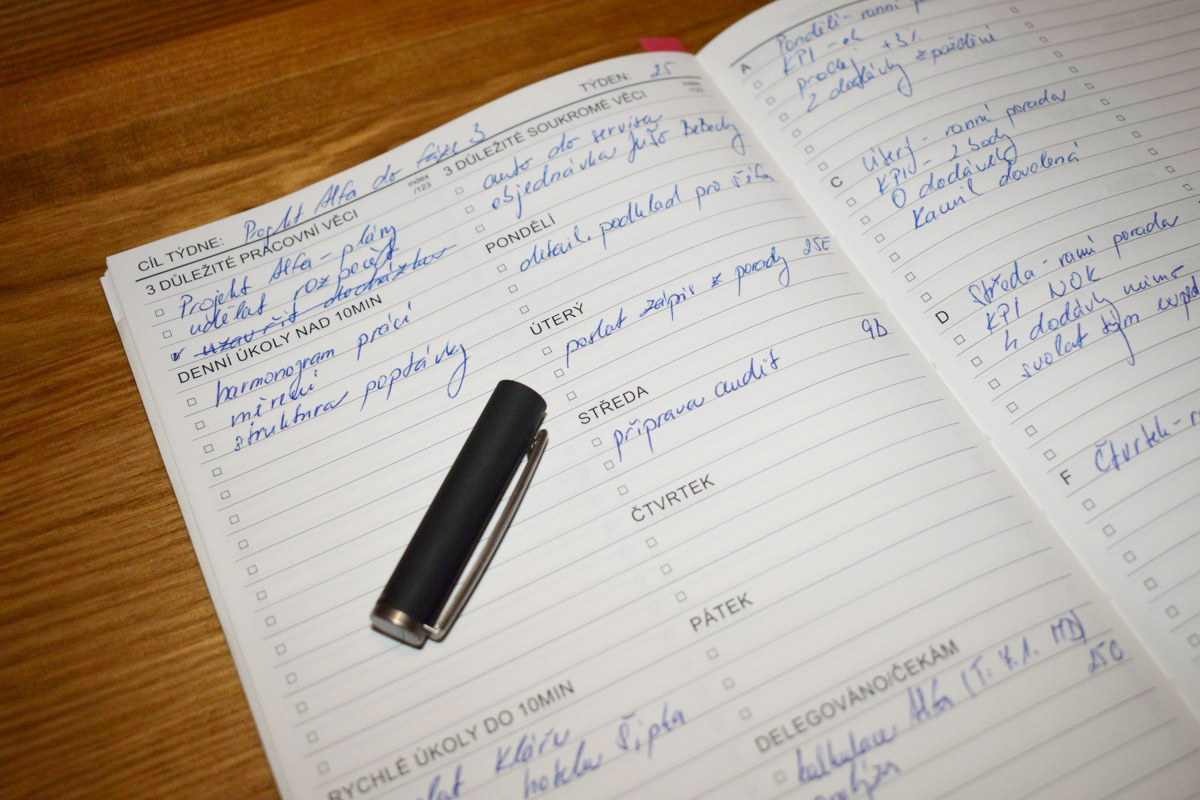 TÝDEN: 25
CÍL TÝDNE: Projekt Alfa do fáze 3
index
/123
3 DŮLEŽITÉ PRACOVNÍ VĚCI
Projekt Alfa - plány
udělat rozpočet
uzavřít docházku
DENNÍ ÚKOLY NAD 10MIN
harmonogram prací
měření
struktura poptávky
RYCHLÉ ÚKOLY DO 10MIN
Kláru
hotelu Šipka
index
/123
3 DŮLEŽITÉ SOUKROMÉ VĚCI
auto do servisu
objednávka
PONDĚLÍ
detail. podklad pro
ÚTERÝ
poslat zápis z porady 25E
9D
STŘEDA
příprava audit
ČTVRTEK
PÁTEK
DELEGOVÁNO/ČEKÁM
kalkulace Alfa (T: 7.1. MD)
25C
analýza
A
Pondělí - ranní
KPI - ok
prodej +3%
2 dodávky zpoždění
C
Úterý - ranní porada
KPI - 2 body
0 dodávek
Kamil dovolená
D
Středa - ranní porada
KPI NOK
4 dodávky mimo
svolat tým
F
Čtvrtek -